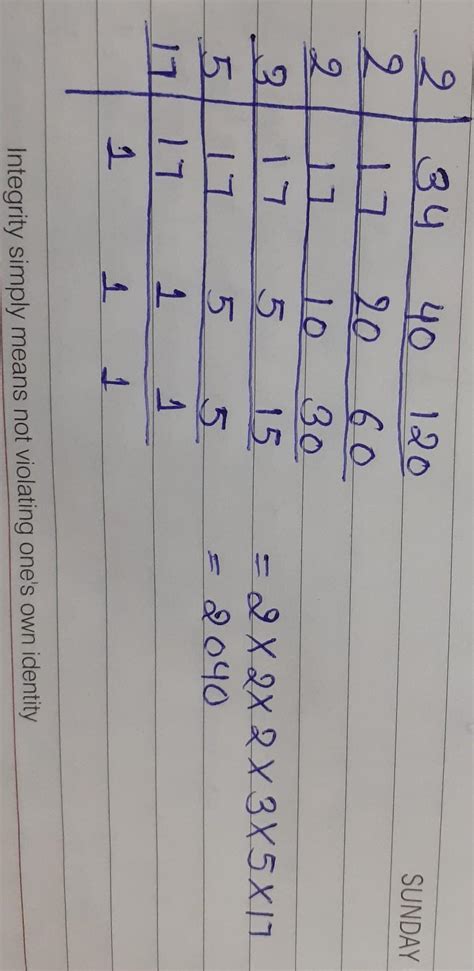 SUNDAY
2 34 40 120
2 17 20 60
2 17 10 30
3 17 5 15
5 17 5 5
17 17 1 1
1 1 1
= 2 X 2 X 2 X 3 X 5 X 17
= 2040
Integrity simply means not violating one's own identity